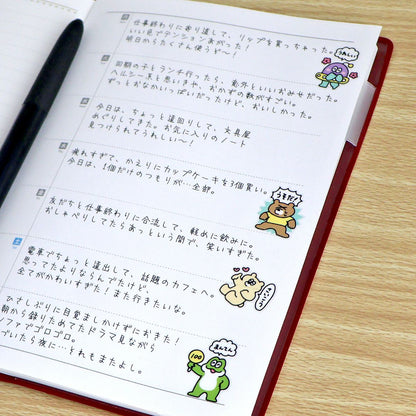 仕事終わりに寄り道して、リップを買っちゃった。
いい色でテンションあがった！
明日からたくさん使うぞ〜！
うれしい
同期の子とランチ行ったら、意外といいおみせだった。
ヘルシー系と思いきや、おかずの数がすごい。
ずっとおなかいっぱいだったけど、おいしかった。
今日は、ちょっと遠回りして、文具屋
めぐりしてきた。お気に入りのノート
見つけられてうれしい〜！
疲れすぎて、かえりにカップケーキを3個買い。
今日は、1個だけのつもりが…全部。
うまそだ!
友だちと仕事終わりに合流して、軽めに飲みに。
おしゃべりしてたらあっという間で、笑いすぎた。
電車でちょっと遠出して、話題のカフェへ。
思ってたよりならんでたけど、
全てがかわいすぎた！また行きたいな。
ひさしぶりに目覚ましかけずにおきた！
朝から録りためてたドラマ見ながら
ソファでゴロゴロ。
づいたら夜に…それもまたよし。
まんてん!
100